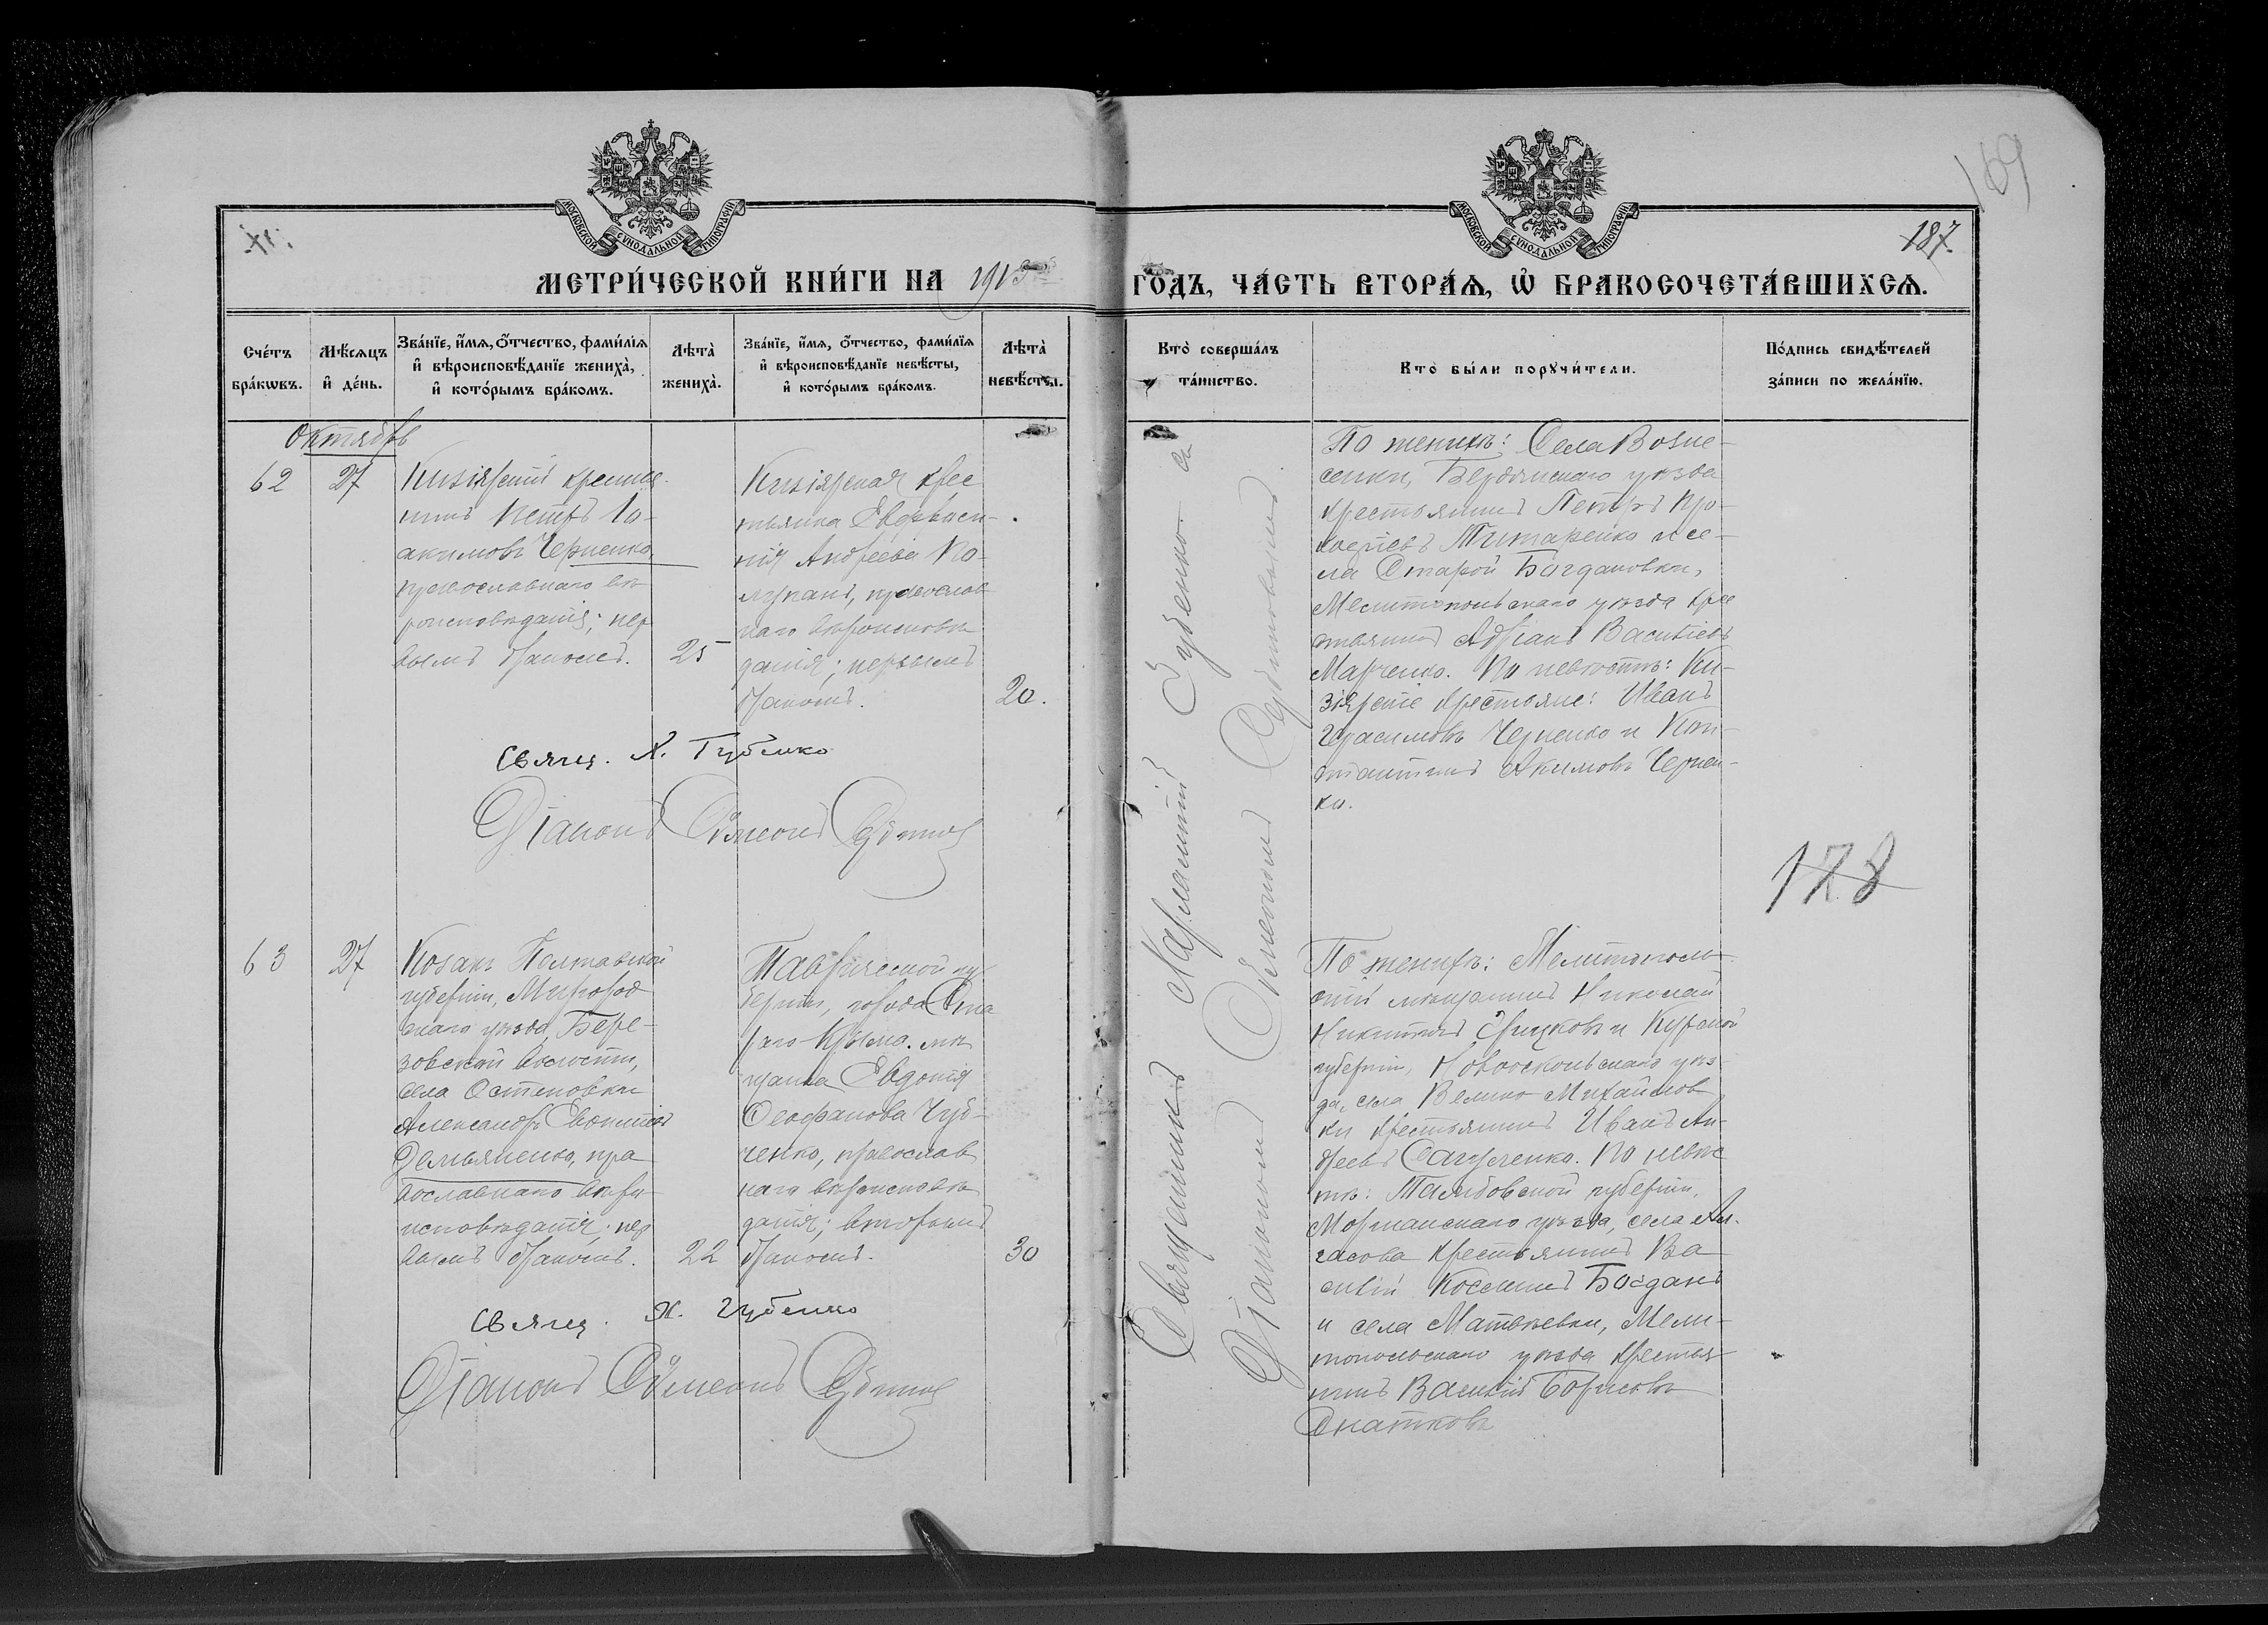 169
187
МОСКОВСКОЙ СѴНОДАЛЬНОЙ ТИПОГРАФІИ
МОСКОВСКОЙ СѴНОДАЛЬНОЙ ТИПОГРАФІИ
МЕТРИ́ЧЕСКОЙ КНИ́ГИ НА 1913 ГО́ДЪ, ЧА́СТЬ ВТОРА́Ѧ, Ѡ҆ БРАКОСОЧЕТА́ВШИХСѦ.
Сче́тъ
бра́кѡвъ.
Мѣ́сѧцъ
и҆ де́нь.
Зва́нїе, и҆́мѧ, ѻ҆́тчество, фами́лїѧ
и҆ вѣроисповѣ́данїе жениха̀,
и҆ кото́рымъ бра́комъ.
Лѣта̀
жениха̀.
Зва́нїе, и҆́мѧ, ѻ҆́тчество, фами́лїѧ
и҆ вѣроисповѣ́данїе невѣ́сты,
и҆ кото́рымъ бра́комъ.
Лѣта̀
невѣ́сты.
Кто̀ соверша́лъ
та́инство.
Кто̀ бы́ли порꙋчи́тели.
По́дпись свидѣ́телей
за́писи по жела́нїю.
Октябрь
62
27
Кизіярскій крестья-
нинъ Петръ Іо-
акимовъ Черненко
православнаго вѣ-
роисповѣданія; пер
вымъ бракомъ.
25
Кизіярская крес
тьянка Евфроси-
нія Андреева По-
лупанъ, православ
наго вѣроисповѣ
данія; первымъ
бракомъ.
20.
Священникъ Харлампій Губенко съ
Діакономъ Симеономъ Субботовымъ
По женихѣ: Села Возне-
сенки, Бердянскаго уѣзда
крестьянинъ Петръ Про-
кофіевъ Титаренко и се-
ла Старой Богдановки,
Мелитопольскаго уѣзда крес
тьянинъ Адріанъ Васильевъ
Марченко. По невѣстѣ: Ки-
зіярскіе крестьяне: Иванъ
Герасимовъ Черненко и Кон-
стантинъ Акимовъ Чернен-
ко.
Свящ. Х. Губенко
Діаконъ Симеонъ
178
63
27
Козакъ Полтавской
губерніи, Миргород
скаго уѣзда, Бере-
зовской волости,
села Остаповки
Александръ
Демьяненко, пра
вославнаго вѣро
исповѣданія; пер
вымъ бракомъ.
22
Таврической гу
берніи, города Ста
раго Крыма. мѣ
щанка Евдокія
Феофанова Чуб-
ченко, православ
наго вѣроисповѣ
данія; вторымъ
бракомъ.
30
По женихѣ: Мелитополь-
скій мѣщанинъ Николай
Никитинъ Грицковъ и Курской
губерніи, Новооскольскаго уѣз-
да, села Велико Михайлов
ки крестьянинъ Иванъ Ан-
дреевъ По невѣс
тѣ: Тамбовской губерніи,
Моршанскаго уѣзда, села Ал-
гасова крестьянинъ Ва
силій Косминъ Богданъ
и села Матвѣевки, Мели-
топольскаго уѣзда крестья-
нинъ Василій Борисовъ
Снатковъ
Свящ. Х. Губенко
Діаконъ Симеонъ